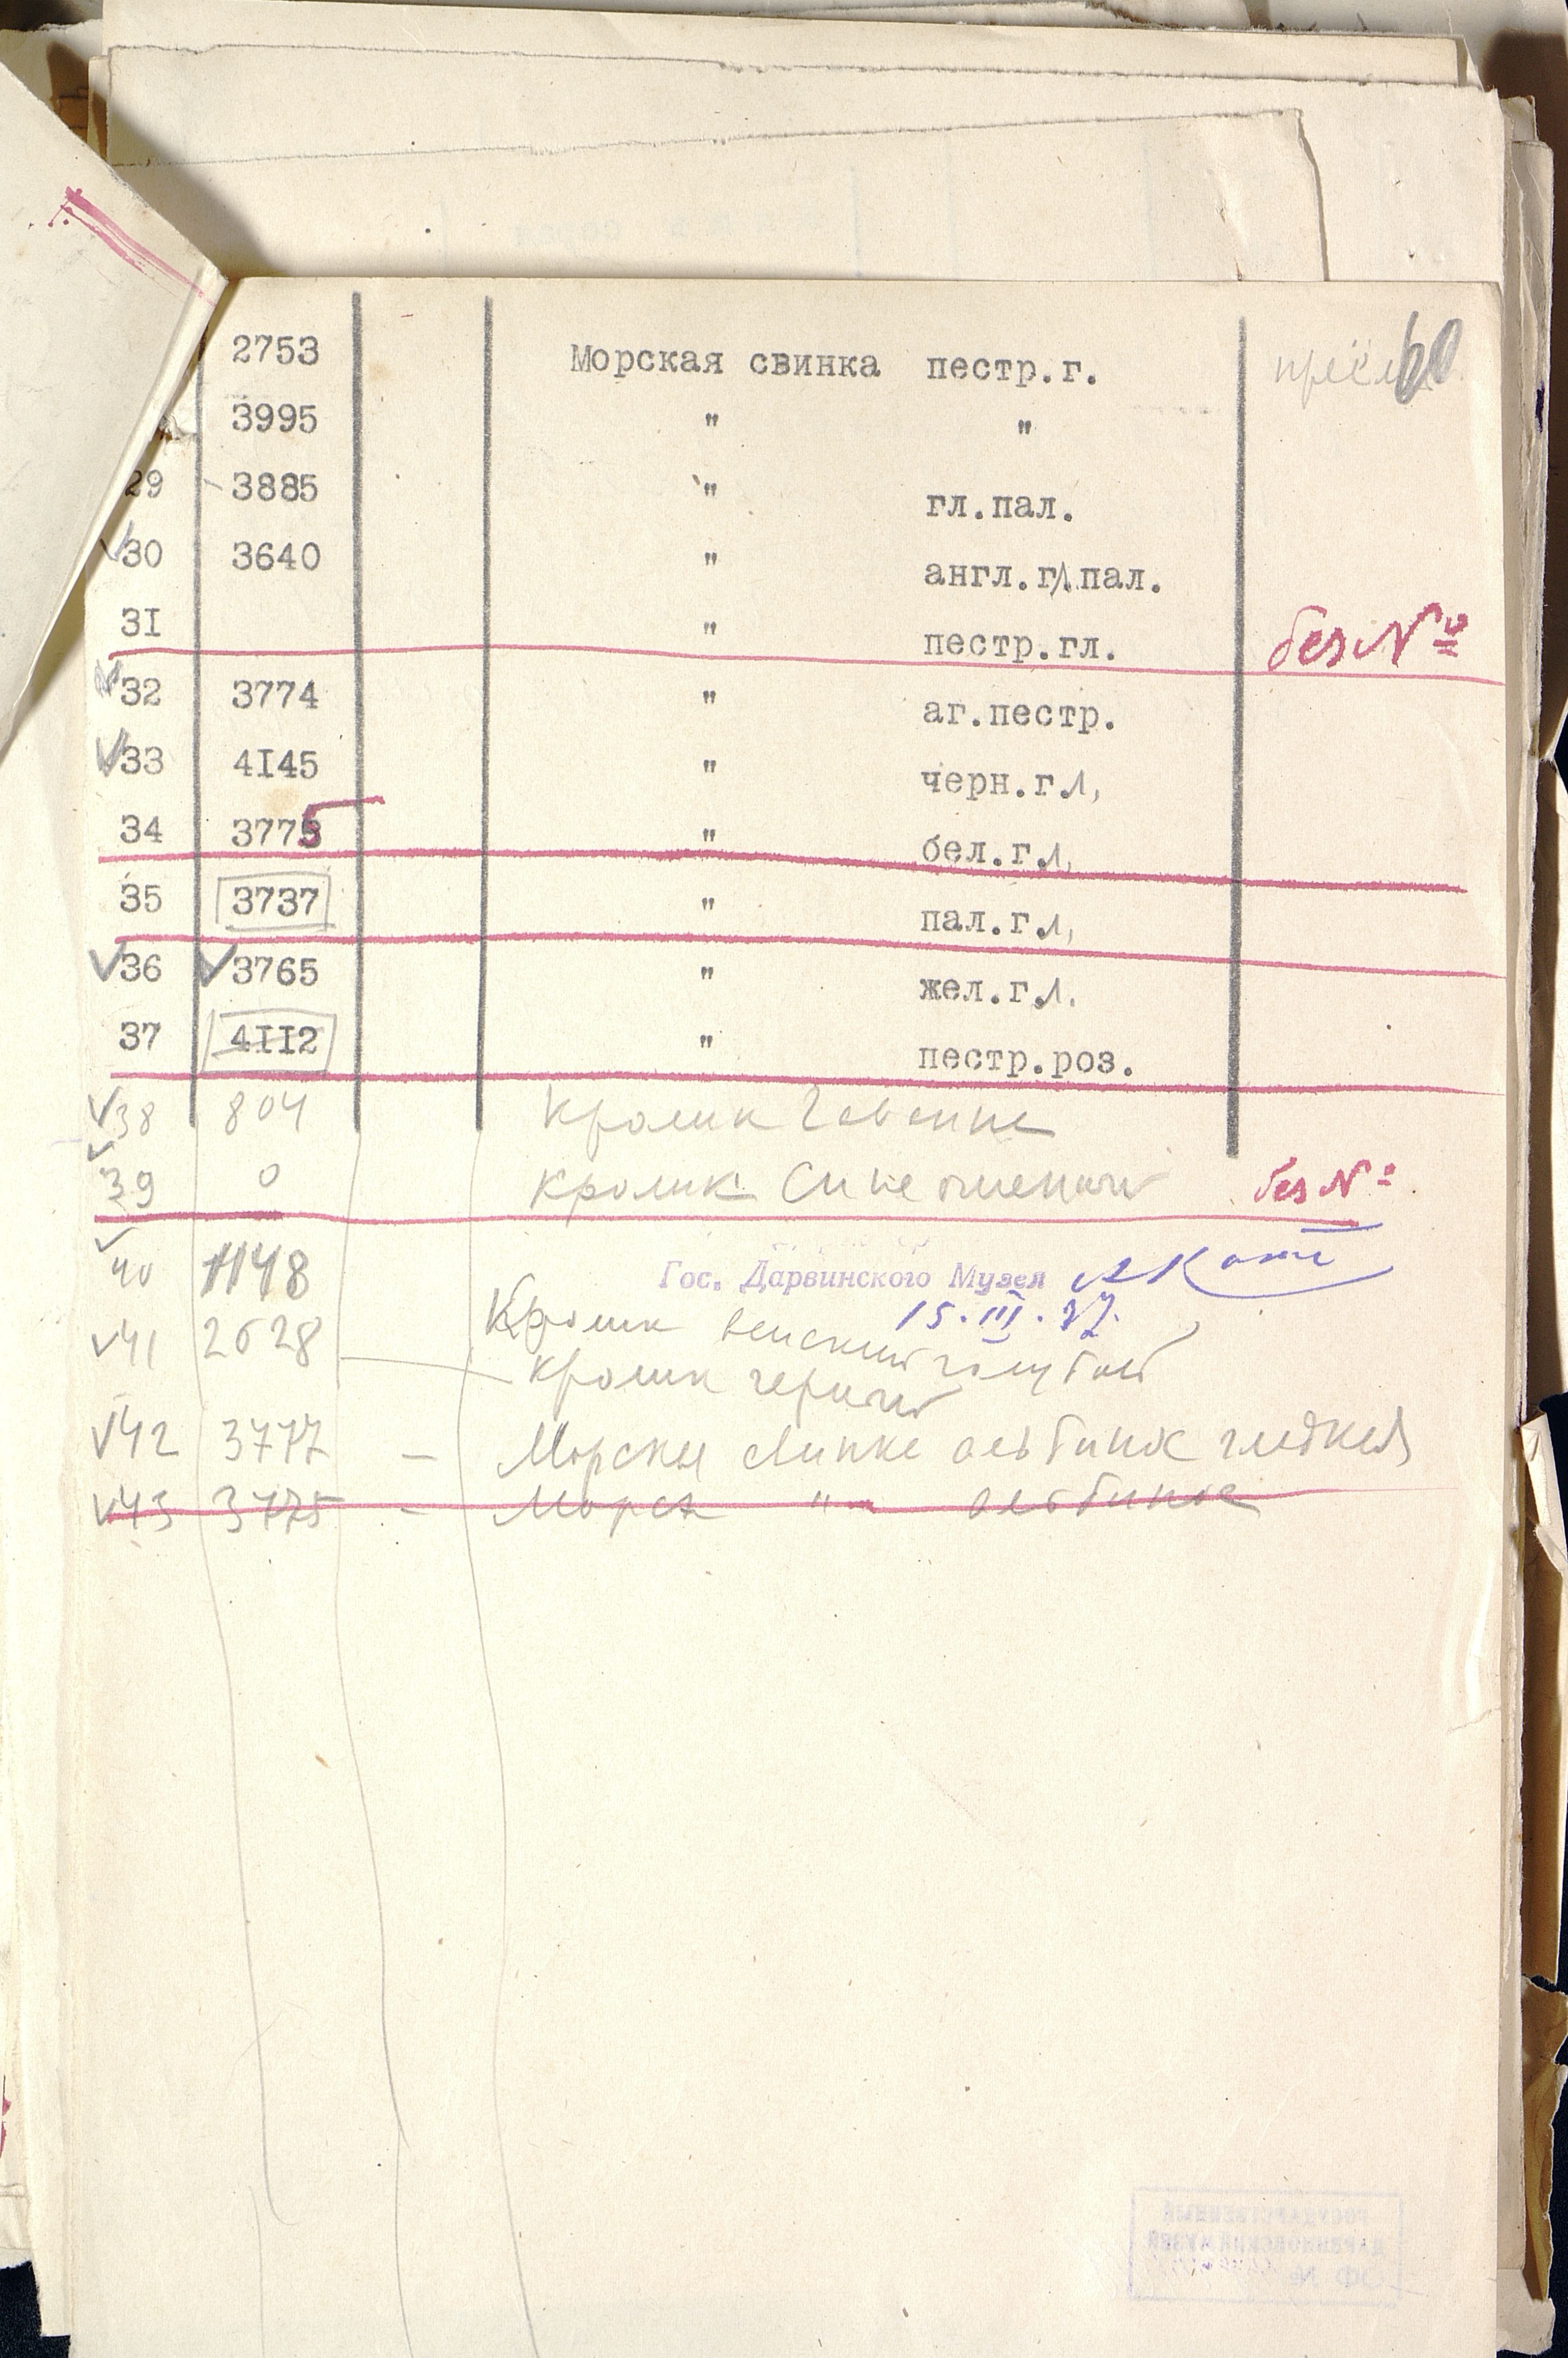 2753 Морская свинка пестр.г. 60
3995 " "
29 3885 " гл.пал.
30 3640 " англ.гл.пал.
31 " пестр.гл. без №
32 3774 " аг.пестр.
33 4145 " черн.гл.
34 3775 " бел.гл.
35 3737 " пал.гл.
36 3765 " жел.гл.
37 4112 " пестр.роз.
38 804 Кролик
39 0 Кролик без №
40 1148
Гос. Дарвинского Музея
15.III.37.
Кролик венский голубой
41 2628 Кролик черный
42 3777 – Морская свинка альбинос гладкая
43 3775 – Морск " альбинос
ГОСУДАРСТВЕННЫЙ
ДАРВИНОВСКИЙ МУЗЕЙ
ОФ №